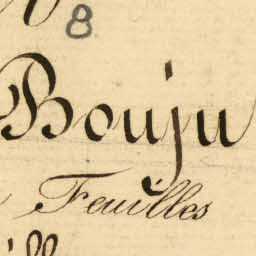 8
Bouju
Feuilles